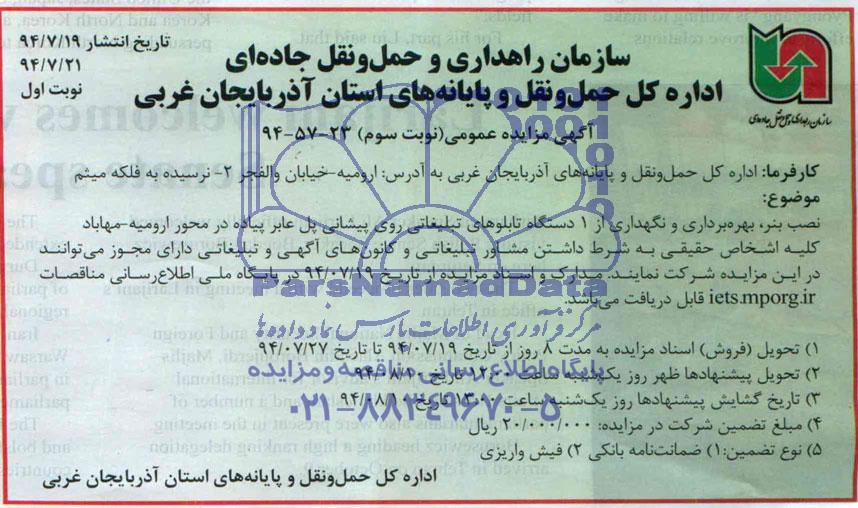 سازمان راهداری و حمل‌ونقل جاده‌ای
اداره کل حمل‌ونقل و پایانه‌های استان آذربایجان غربی
تاریخ انتشار ۹۴/۷/۱۹
۹۴/۷/۲۱
نوبت اول
آگهی مزایده عمومی(نوبت سوم) ۲۳-۵۷-۹۴
کارفرما: اداره کل حمل‌ونقل و پایانه‌های آذربایجان غربی به آدرس: ارومیه-خیابان والفجر ۲- نرسیده به فلکه میثم
موضوع:
نصب بنر، بهره‌برداری و نگهداری از ۱ دستگاه تابلوهای تبلیغاتی روی پیشانی پل عابر پیاده در محور ارومیه-مهاباد
کلیه اشخاص حقیقی به شرط داشتن مشاور تبلیغاتی و کانون‌های آگهی و تبلیغاتی دارای مجوز می‌توانند
در این مزایده شرکت نمایند. مدارک و اسناد مزایده از تاریخ ۹۴/۰۷/۱۹ در پایگاه ملی اطلاع‌رسانی مناقصات
iets.mporg.ir قابل دریافت می‌باشد.
۱) تحویل (فروش) اسناد مزایده به مدت ۸ روز از تاریخ ۹۴/۰۷/۱۹ تا تاریخ ۹۴/۰۷/۲۷
۲) تحویل پیشنهادها ظهر روز یکشنبه ساعت ۱۲:۰۰ تاریخ
۳) تاریخ گشایش پیشنهادها روز یک‌شنبه ساعت ۱۳:۰۰ تاریخ ۹۴/۰۸/۱۰
۴) مبلغ تضمین شرکت در مزایده: ۲۰/۰۰۰/۰۰۰ ریال
۵) نوع تضمین:۱) ضمانت‌نامه بانکی ۲) فیش واریزی
اداره کل حمل‌ونقل و پایانه‌های استان آذربایجان غربی
سازمان راهداری و حمل و نقل جاده‌ای
ParsNamadData
مرکز فرآوری اطلاعات پارس نماد داده‌ها
پایگاه اطلاع رسانی مناقصه و مزایده
۰۲۱-۸۸۳۴۹۶۷۰-۵